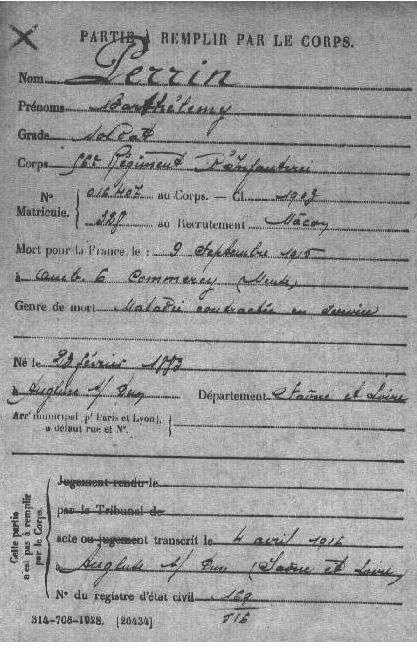 PARTIE À REMPLIR PAR LE CORPS.
Nom Perrin
Prénoms Barthélemy
Grade Soldat
Corps 56e Régiment d'Infanterie
N° Matricule. { 016707 au Corps. — Cl. 1903
328 au Recrutement Mâcon
Mort pour la France, le : 9 Septembre 1915
à Amb. 6 Commercy (Meuse)
Genre de mort Maladie contractée en service
Né le 23 février 1883
à Anglure s/ Dun Département Saône et Loire
Arrt municipal (pr Paris et Lyon), à défaut rue et N°. }
Cette partie n'est pas à remplir par le Corps.
Jugement rendu le
par le Tribunal de
acte ou jugement transcrit le 4 avril 1916
à Anglure s/ Dun (Saône et Loire)
N° du registre d'état civil 169
314-708-1928. [26434]